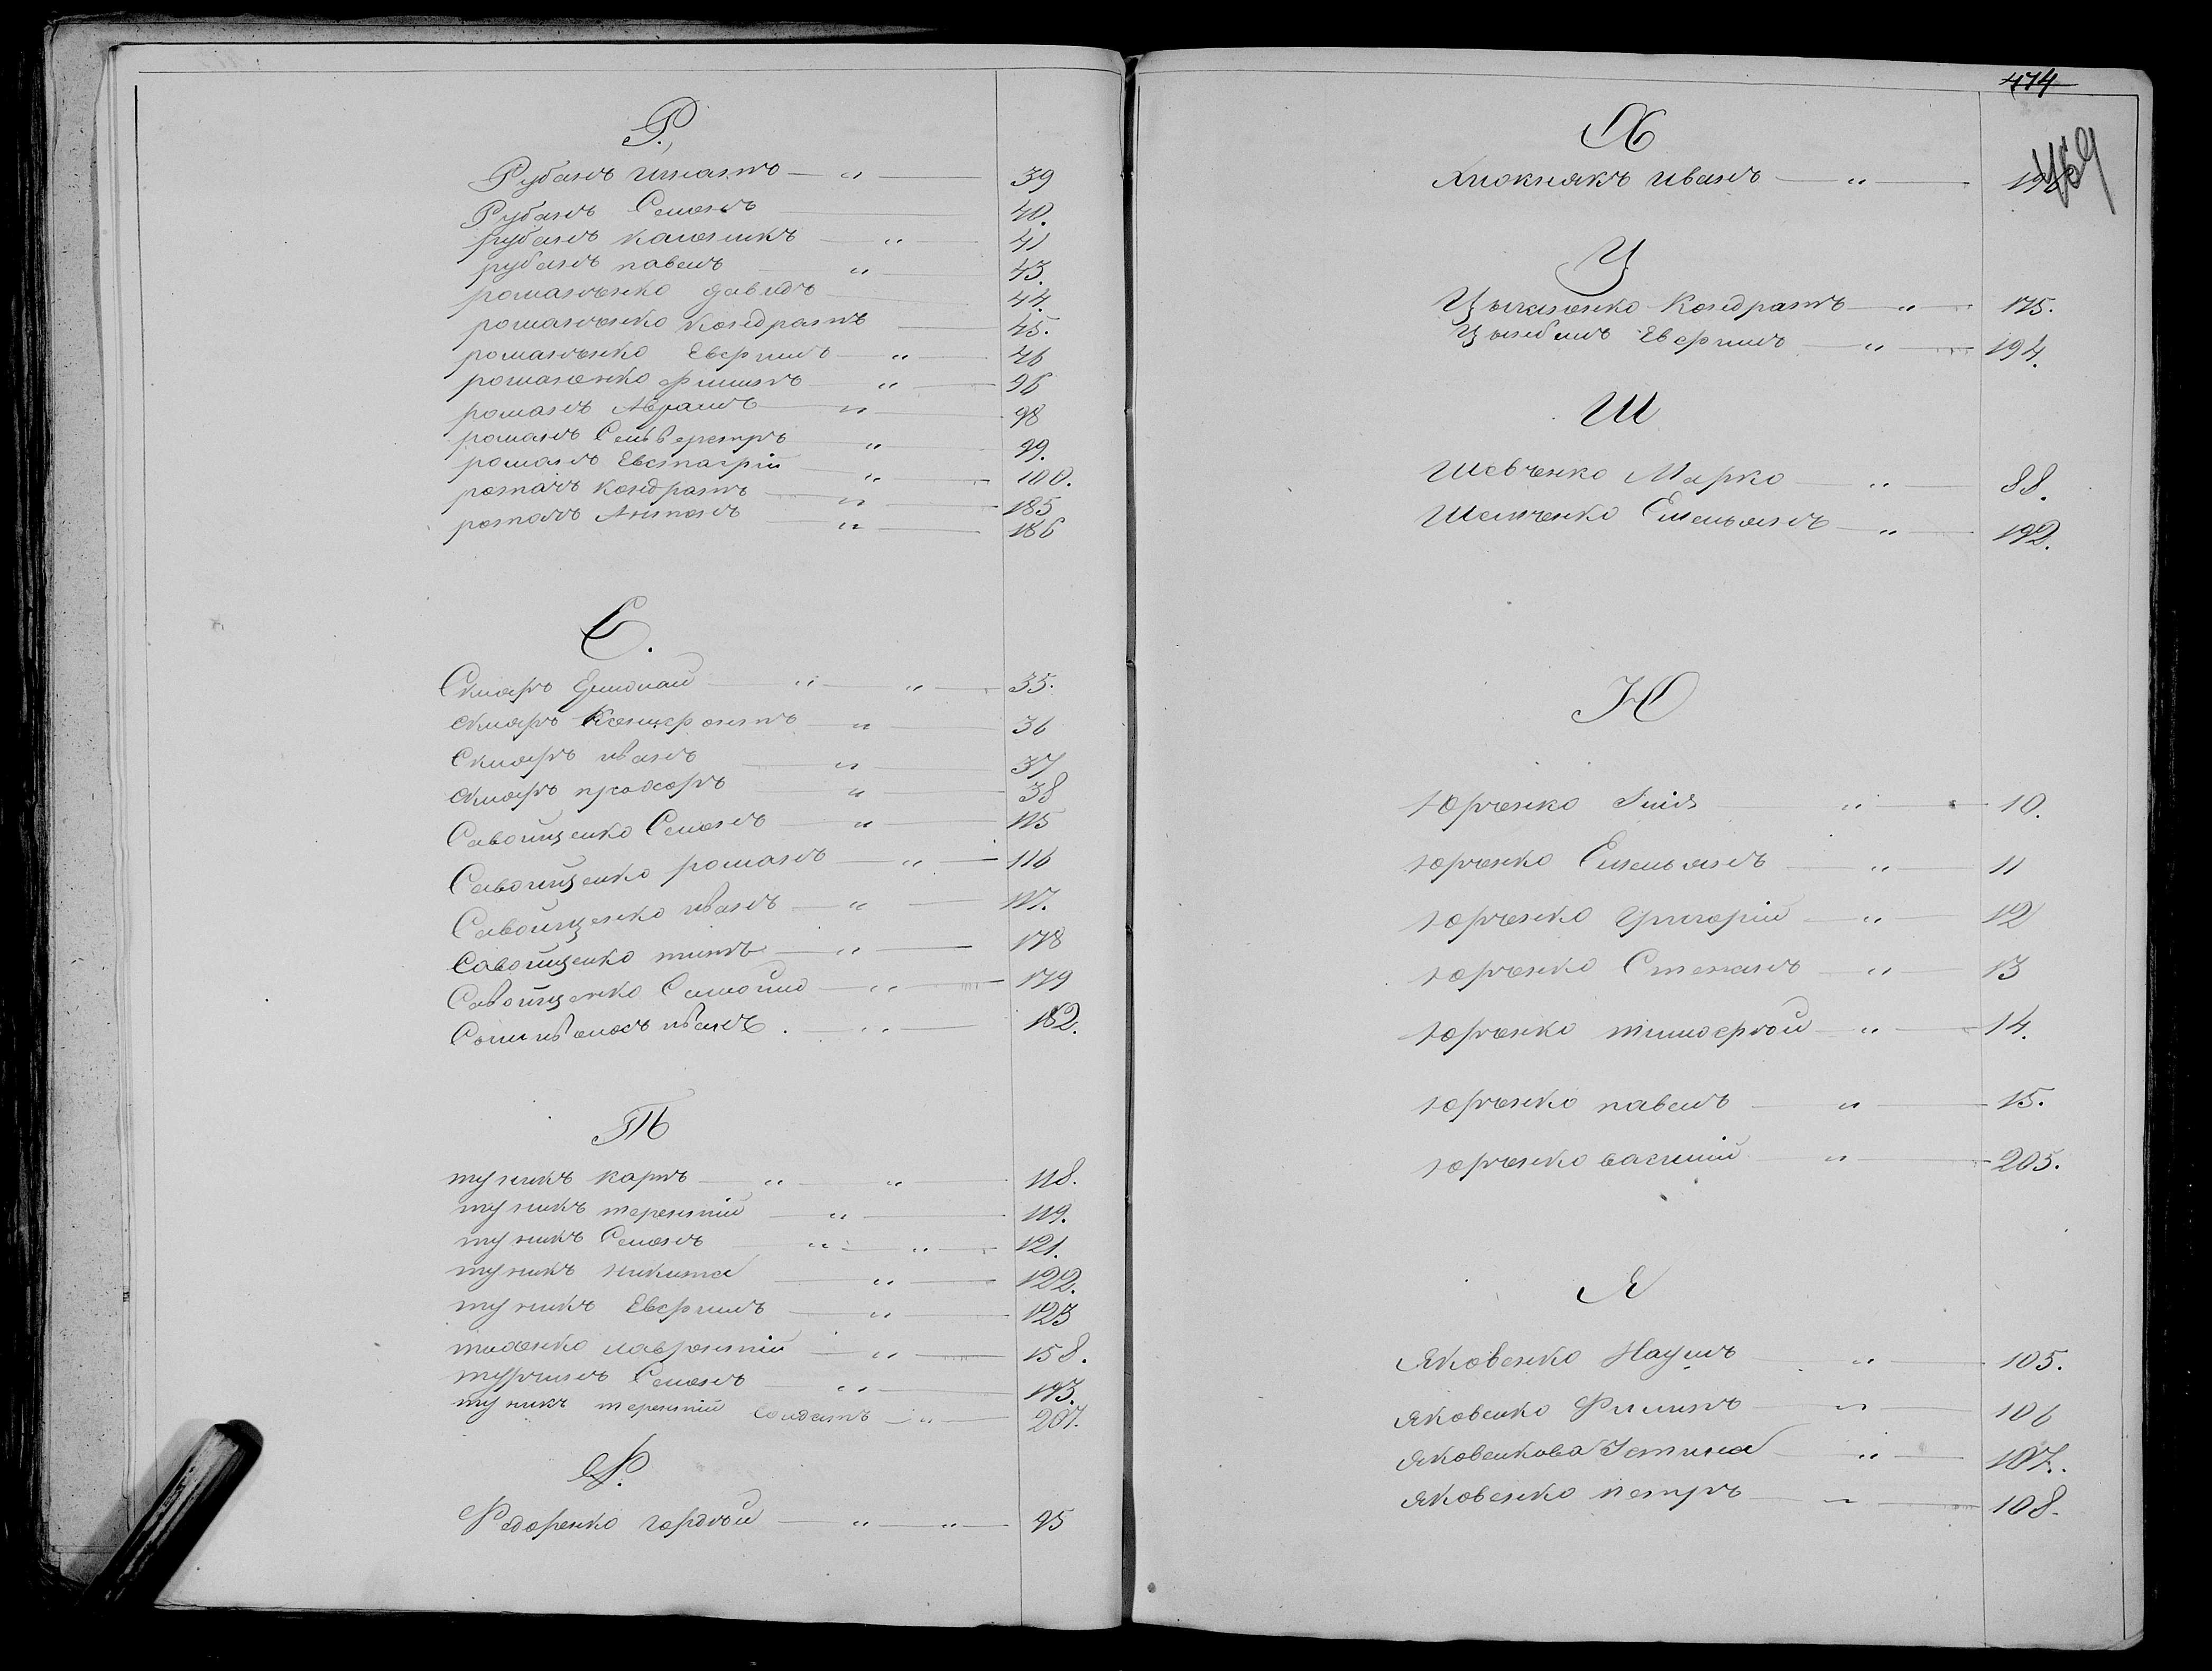 Р.
Рубанъ Игнатъ — " — 39
Рубанъ Семенъ — 40.
рубанъ каленикъ — " — 41
рубанъ павелъ — " — 43.
романченко давидъ — 44.
романченко Кондратъ — 45.
романченко Евфримъ — " — 46
романенко филипъ — " — 96
романъ Аврамъ — " — 98
романъ Селиверстръ — " — 99.
романъ Евстафій — " — 100.
ротачъ Кондратъ — " — 185
ротачъ Антонъ — " — 186
С.
Скляръ Ермолай — " — " — 35.
Скляръ Ксенофонтъ — " — 36
Скляръ иванъ — " — 37
Скляръ прохоръ — " — 38
Савойщенко Семенъ — " — 115
Савойщенко романъ — " — 116
Савойщенко иванъ — " — 117.
Савойщенко титъ — " — 178
Савойщенко Самойло — " — 179
иванъ . — " — 182.
Т
тупикъ карпъ — " — " — 118.
тупикъ терентий — " — 119.
тупикъ Семенъ — " — " — 121.
тупикъ никита — " — 122.
тупикъ Евфримъ — " — 123
тихенко лаврентій — " — 158.
турчинъ Семенъ — " — 193.
тупикъ терентий Солдатъ — " — 207.
Ф.
Федоренко гордѣй — " — " — 95
474
469
Х
Хижнякъ иванъ — " —
Ц
Цыганенко Кондратъ — " — 175.
Цымбалъ Евфримъ — " — 194.
Ш
Шевченко Марко — " — 88.
Шевченко Емельянъ — " — 192.
Ю
Юрченко Илія — " — 10.
юрченко Емельянъ — " — 11
юрченко Григорій — " — 12
юрченко Степанъ — " — 13
юрченко тимофѣй — " — 14.
юрченко павелъ — " — 15.
юрченко василий — " — 205.
Я
Яковенко Наумъ — " — 105.
яковенко Филипъ — " — 106
яковенкова Устина — " — 107.
яковенко петръ — " — 108.